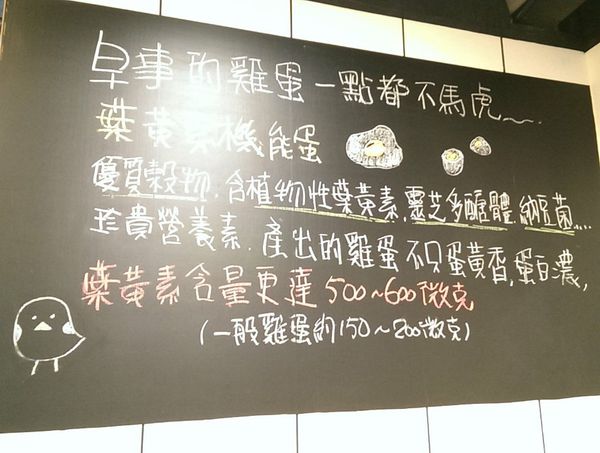 早事的雞蛋一點都不馬虎~....
葉黃素機能蛋
優質穀物,含植物性葉黃素,靈芝多醣體,納豆菌....
珍貴營養素,產出的雞蛋不只蛋黃香,蛋白濃,
葉黃素含量更達500~600微克
(一般雞蛋約150~200微克)